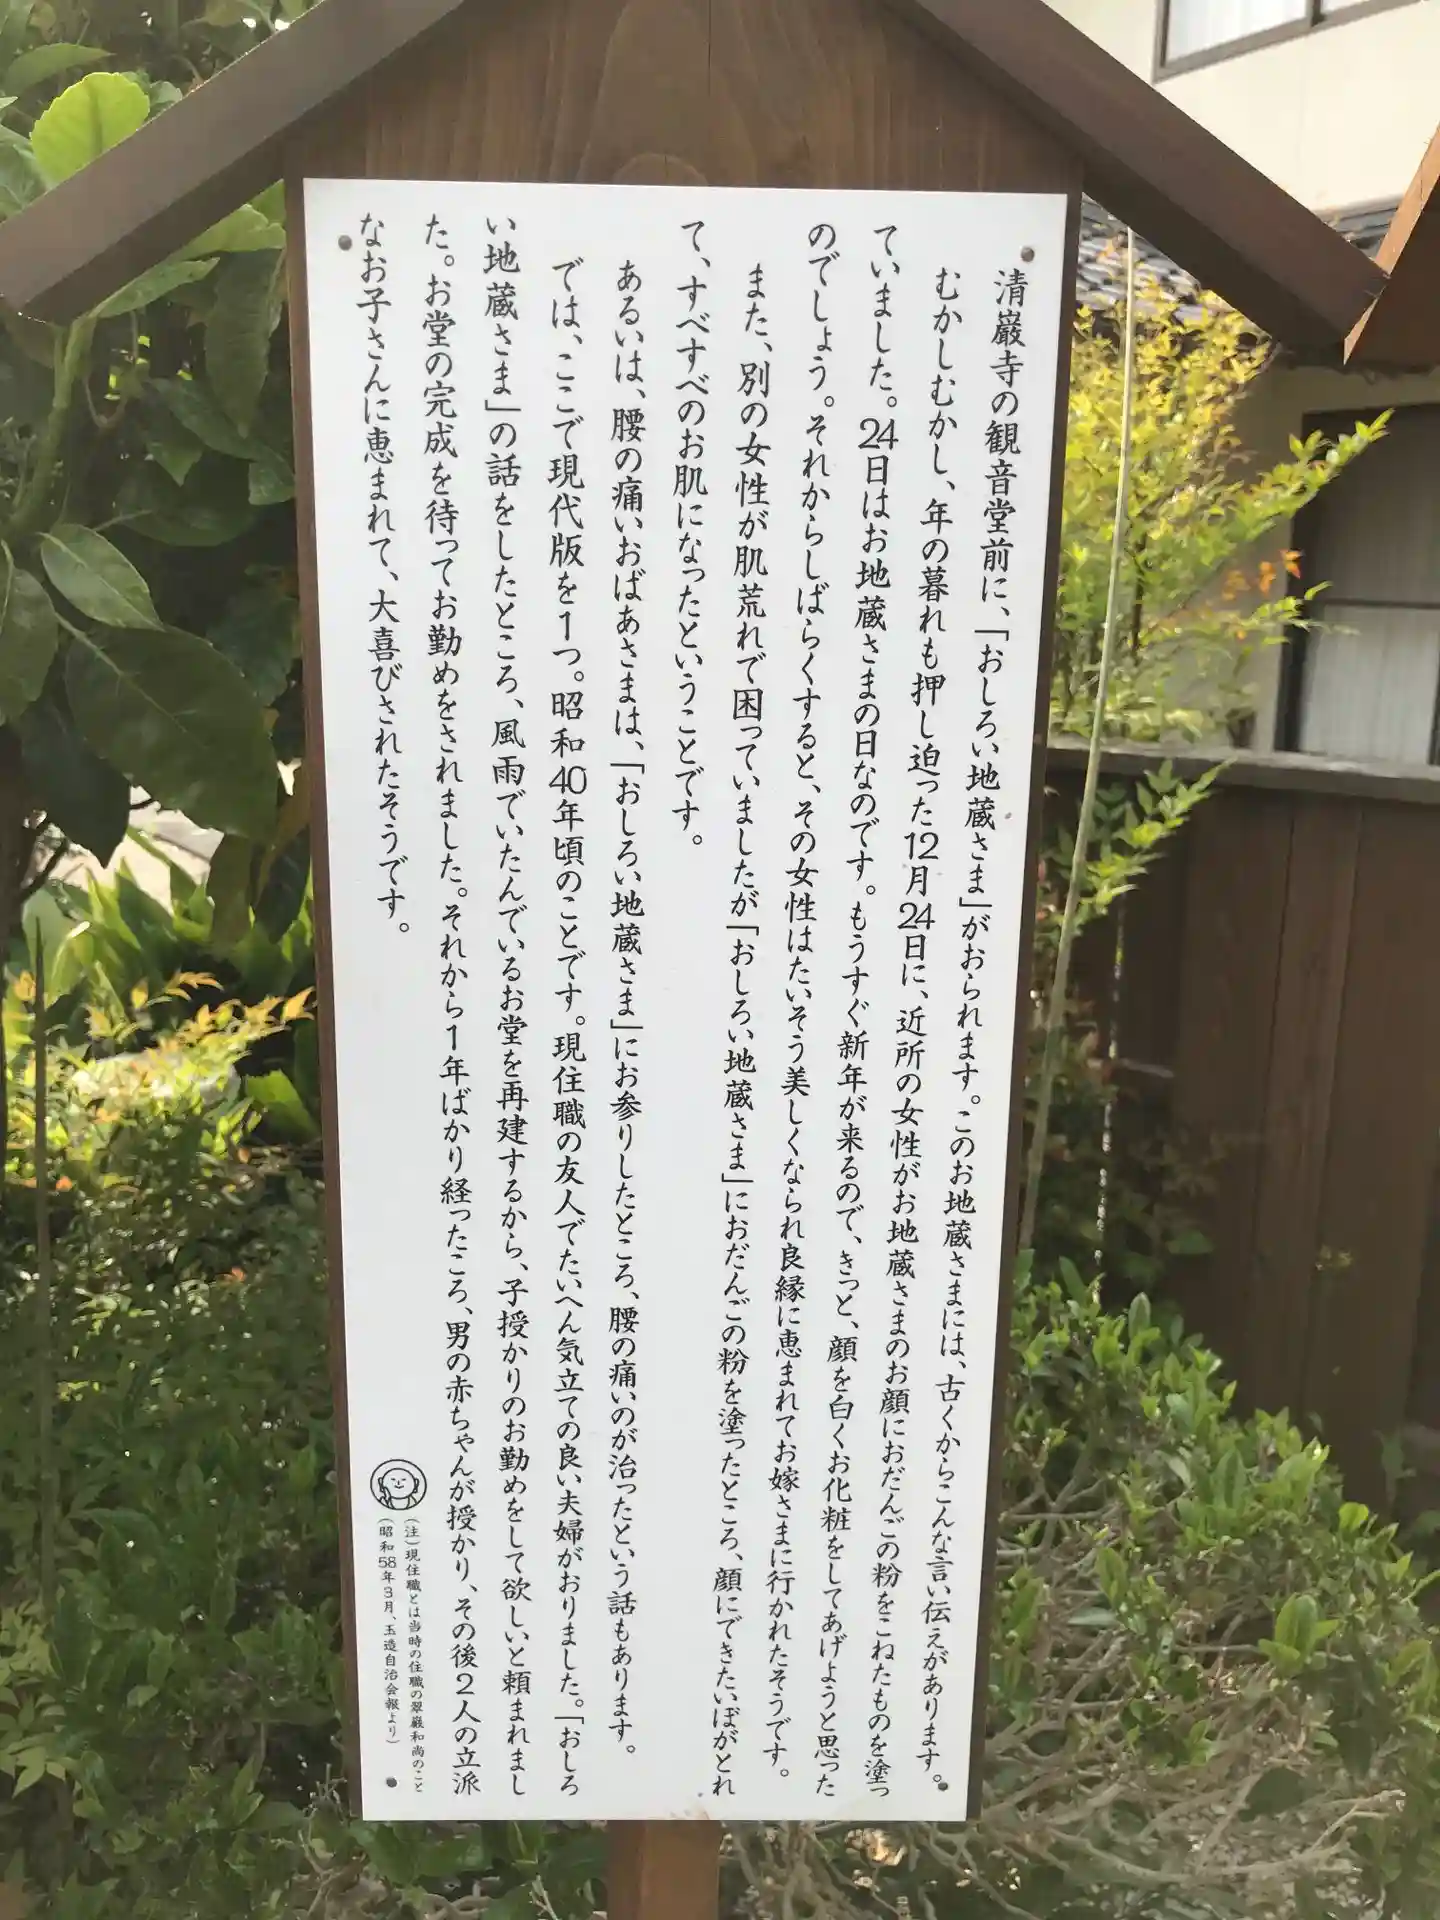 清巖寺の観音堂前に、「おしろい地蔵さま」がおられます。このお地蔵さまには、古くからこんな言い伝えがあります。
むかしむかし、年の暮れも押し迫った12月24日に、近所の女性がお地蔵さまのお顔におだんごの粉をこねたものを塗っ
ていました。24日はお地蔵さまの日なのです。もうすぐ新年が来るので、きっと、顔を白くお化粧をしてあげようと思った
のでしょう。それからしばらくすると、その女性はたいそう美しくなられ良縁に恵まれてお嫁さまに行かれたそうです。
また、別の女性が肌荒れで困っていましたが「おしろい地蔵さま」におだんごの粉を塗ったところ、顔にできたいぼがとれ
て、すべすべのお肌になったということです。
あるいは、腰の痛いおばあさまは、「おしろい地蔵さま」にお参りしたところ、腰の痛いのが治ったという話もあります。
では、ここで現代版を1つ。昭和40年頃のことです。現住職の友人でたいへん気立ての良い夫婦がおりました。「おしろ
い地蔵さま」の話をしたところ、風雨でいたんでいるお堂を再建するから、子授かりのお勤めをして欲しいと頼まれまし
た。お堂の完成を待ってお勤めをされました。それから1年ばかり経ったころ、男の赤ちゃんが授かり、その後2人の立派
なお子さんに恵まれて、大喜びされたそうです。
(注)現住職とは当時の住職の翠巖和尚のこと
(昭和58年3月、玉造自治会報より)